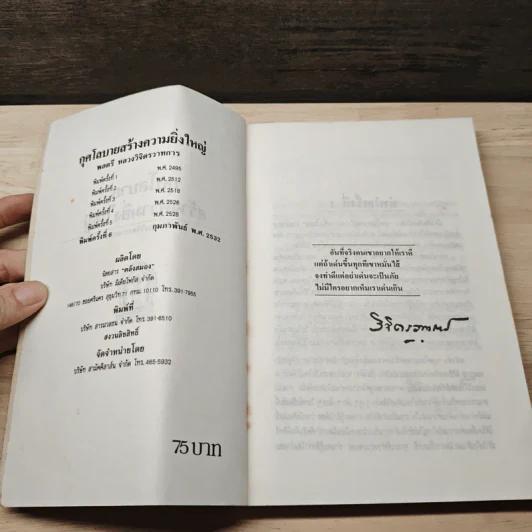 กุศโลบายสร้างความยิ่งใหญ่
พลตรี หลวงวิจิตรวาทการ
พิมพ์ครั้งที่ 1 พ.ศ. 2495
พิมพ์ครั้งที่ 2 พ.ศ. 2512
พิมพ์ครั้งที่ 3 พ.ศ. 2518
พิมพ์ครั้งที่ 4 พ.ศ. 2526
พิมพ์ครั้งที่ 5 พ.ศ. 2528
พิมพ์ครั้งที่ 6 กุมภาพันธ์ พ.ศ. 2532
ผลิตโดย
นิตยสาร "คลังสมอง"
บริษัท มีเดียโฟกัส จำกัด
ซอยศรีนคร สุขุมวิท 71 กทม. 10110 โทร. 391-7965
พิมพ์ที่
บริษัท สารมวลชน จำกัด โทร. 391-6510
สงวนลิขสิทธิ์
จัดจำหน่ายโดย
บริษัท สามัคคีสาส์น จำกัด โทร. 465-5932
75 บาท
อันที่จริงคนเขาอยากให้เราดี
แต่ถ้าเด่นขึ้นทุกทีเขาหมั่นไส้
จงทำดีแต่อย่าเด่นจะเป็นภัย
ไม่มีใครอยากเห็นเราเด่นเกิน
วิจิตรวาทการ